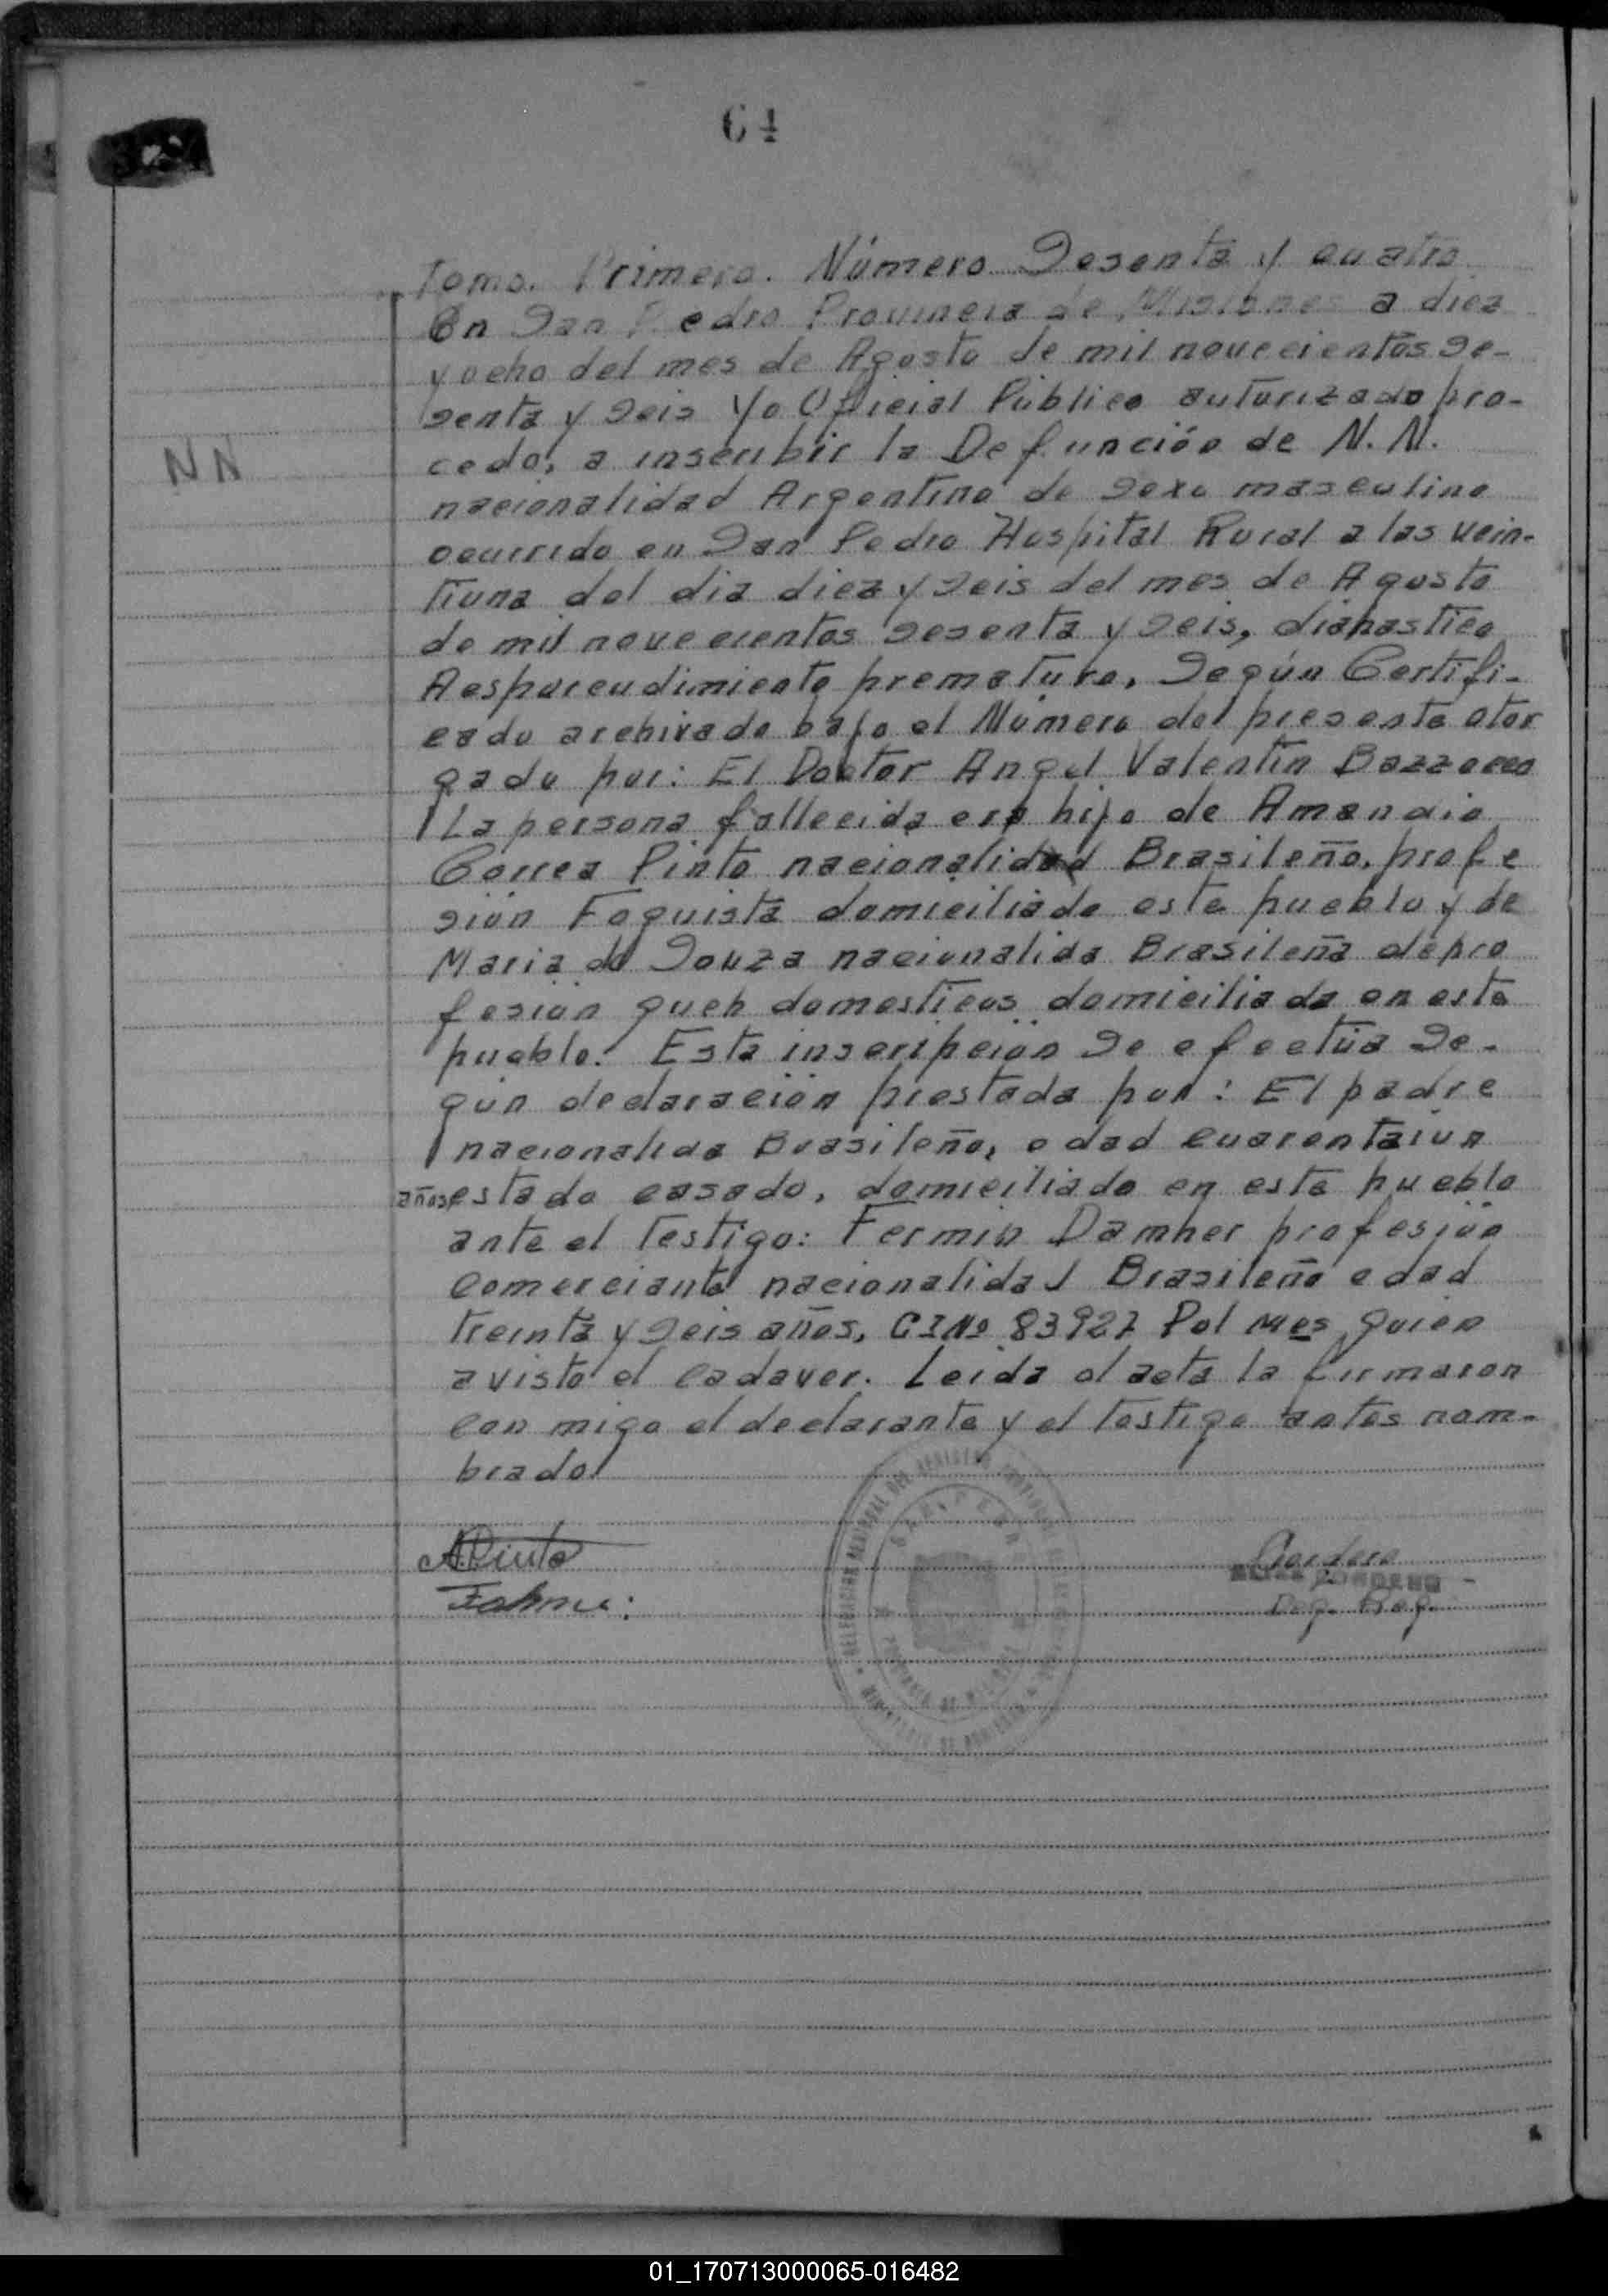 64
Tomo. Primero. Número Sesenta y cuatro
En San Pedro Provincia de Misiones a diez
y ocho del mes de Agosto de mil novecientos se-
senta y seis Yo Oficial Público autorizado pro-
cedo, a inscribir la Defunción de N. N.
NN
nacionalidad Argentino de sexo masculino
ocurrido en San Pedro Hospital Rural a las vein-
tiuna del dia diez y seis del mes de Agosto
de mil novecientos sesenta y seis, dianastico
prematuro, Según Certifi-
cado archivado bajo el Número del presente otor
gado por: El Doctor Angel Valentin Bazzocco
La persona fallecida era hijo de Amancio
Correa Pinto nacionalidad Brasileño, profe
sión Foguista domiciliado este pueblo y de
Maria de Souza nacionalida Brasileña de pro
fesión queh domesticos domiciliada en este
pueblo. Esta inscripción se efectúa se-
gún declaración prestada por: El padre
nacionalida Brasileño, edad cuarentaiun
años estado casado, domiciliado en este pueblo
ante el Testigo: Fermin Damner profesión
comerciante nacionalidad Brasileño edad
treinta y seis años, CINo 83927 Pol Mes quien
avisto el cadaver. Leida el acta la firmaron
con migo el declarante y el testigo antes nom-
brado
APinto
Cordero
CORDERO
Deg. Reg.
01_170713000065-016482